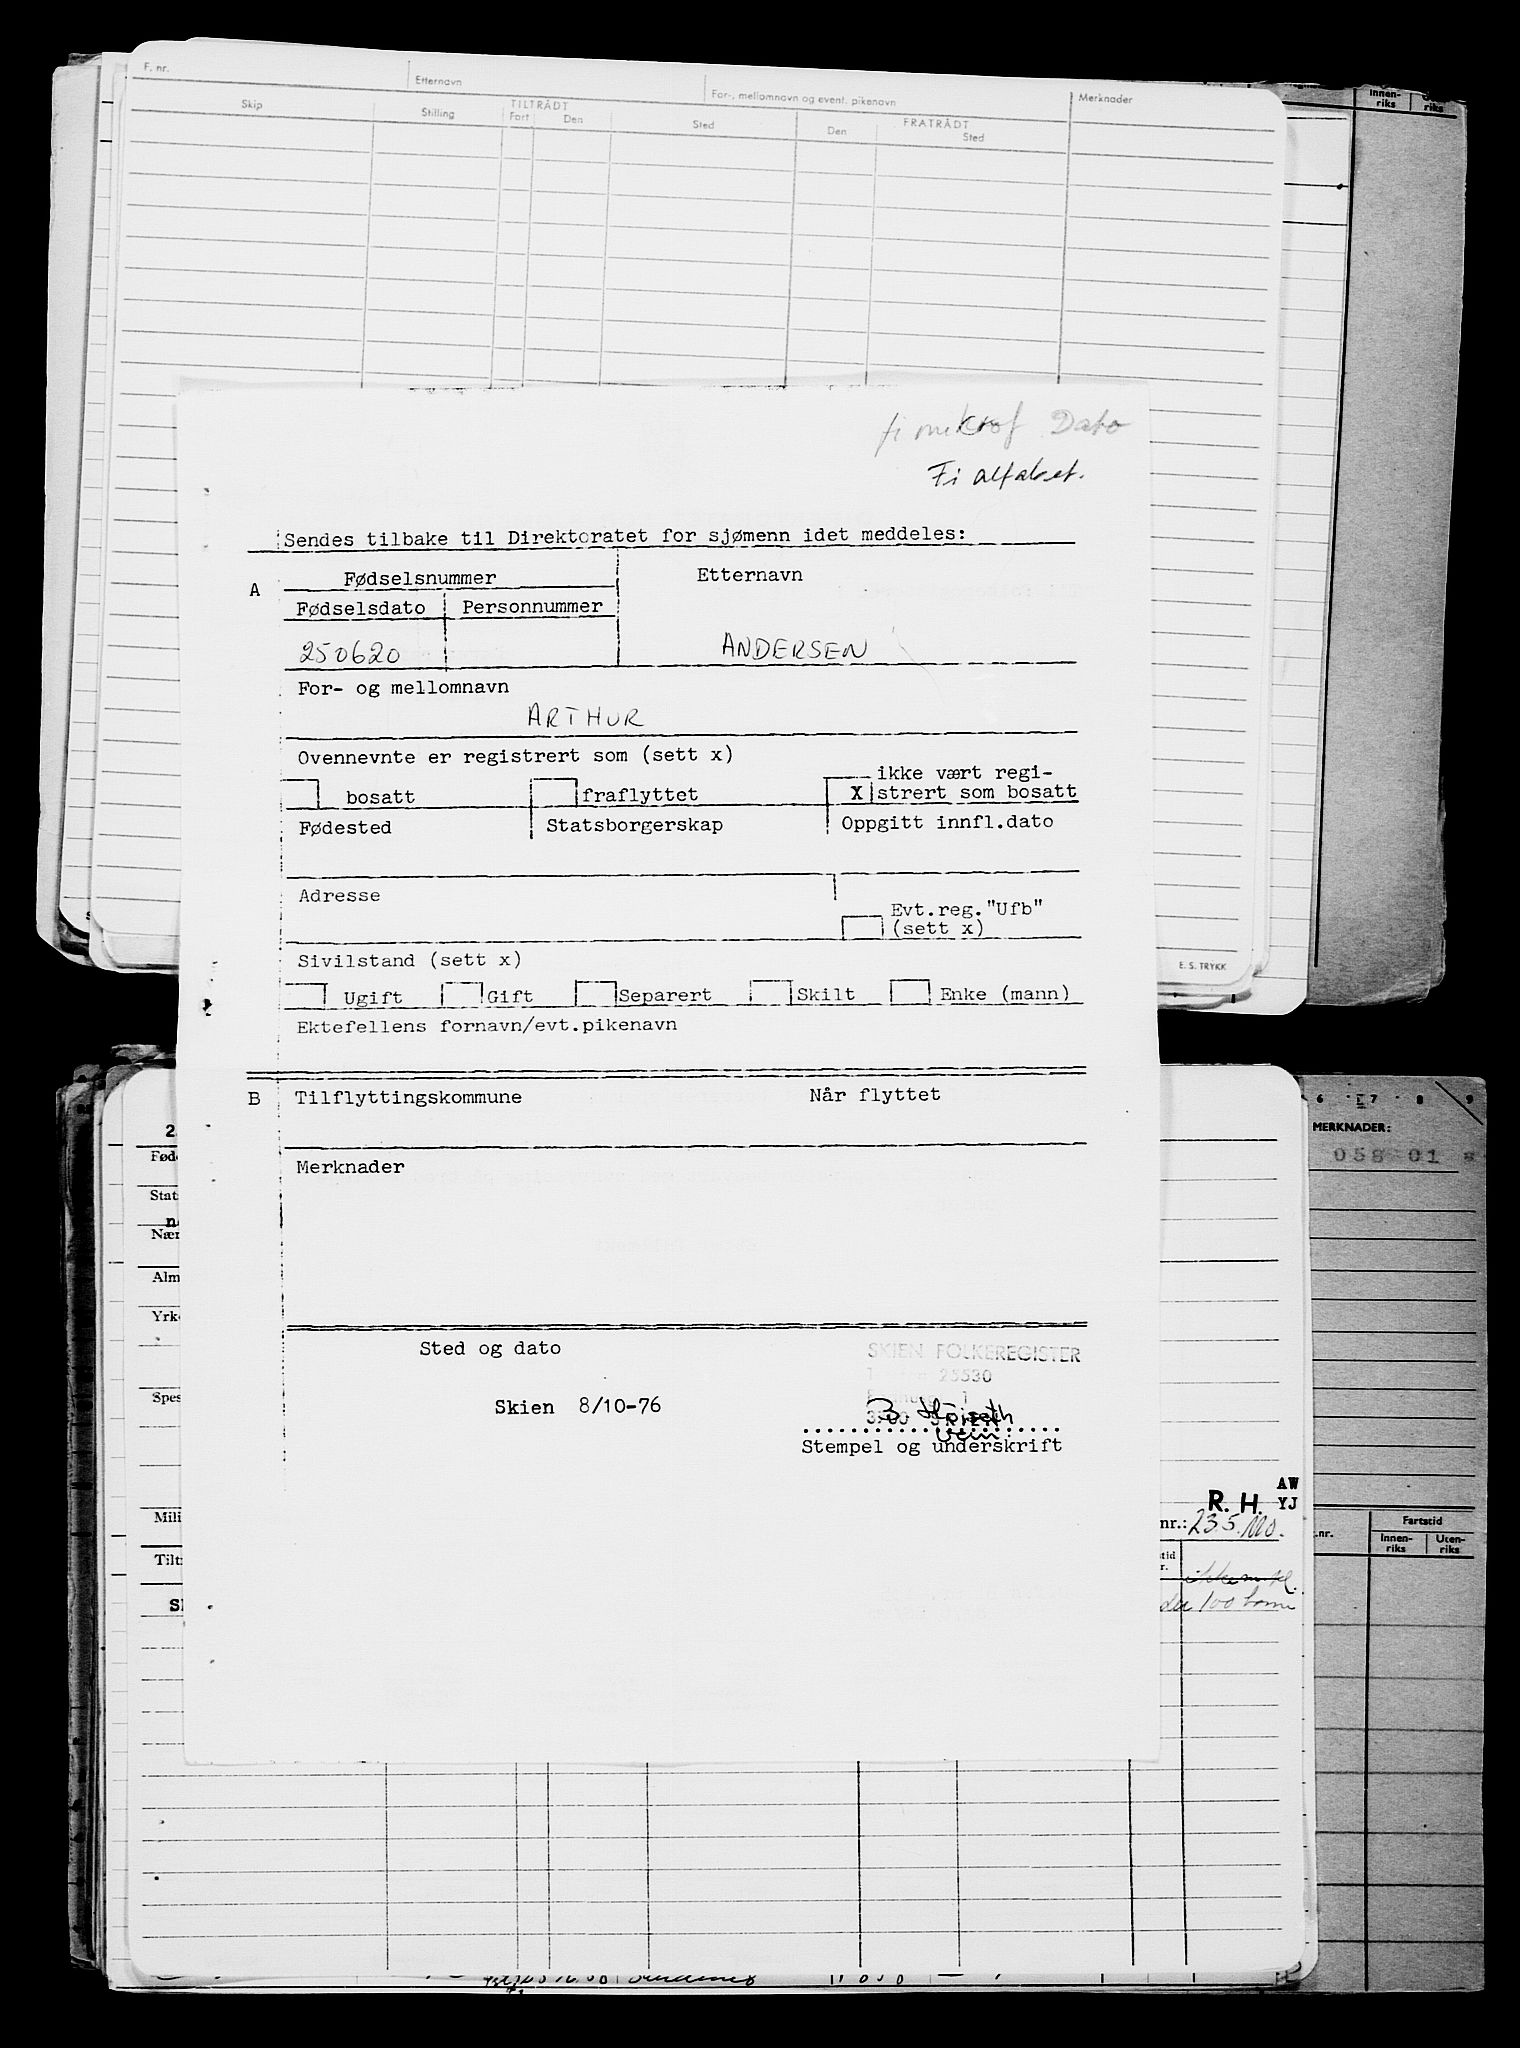 F. nr.
Etternavn
For-, mellomnavn og event. pikenavn
Merknader
Skip
Stilling
TILTRÅDT
Fart
Den
Sted
FRATRÅDT
Den
Sted
Innen-
riks
riks
E. S. TRYKK
fi mikrof Dato
Fi alfabet.
Sendes tilbake til Direktoratet for sjømenn idet meddeles:
A
Fødselsnummer
Etternavn
Fødselsdato
Personnummer
250620
ANDERSEN
For- og mellomnavn
ARTHUR
Ovennevnte er registrert som (sett x)
bosatt
fraflyttet
X
ikke vært regi-
strert som bosatt
Fødested
Statsborgerskap
Oppgitt innfl.dato
Adresse
Evt.reg."Ufb"
(sett x)
Sivilstand (sett x)
Ugift
Gift
Separert
Skilt
Enke (mann)
Ektefellens fornavn/evt.pikenavn
B
Tilflyttingskommune
Når flyttet
Merknader
Sted og dato
SKIEN FOLKEREGISTER
25530
Skien 8/10-76
3700 SKIEN
Stempel og underskrift
6 7 8 9
MERKNADER:
058 01
2.
Føde
Stat
Nær
Alm
Yrke
Spes
Mili
Tilt
AW
R. H. YJ
nr.: 235.
.nr.
Fartstid
Innen-
riks
Uten-
riks
100